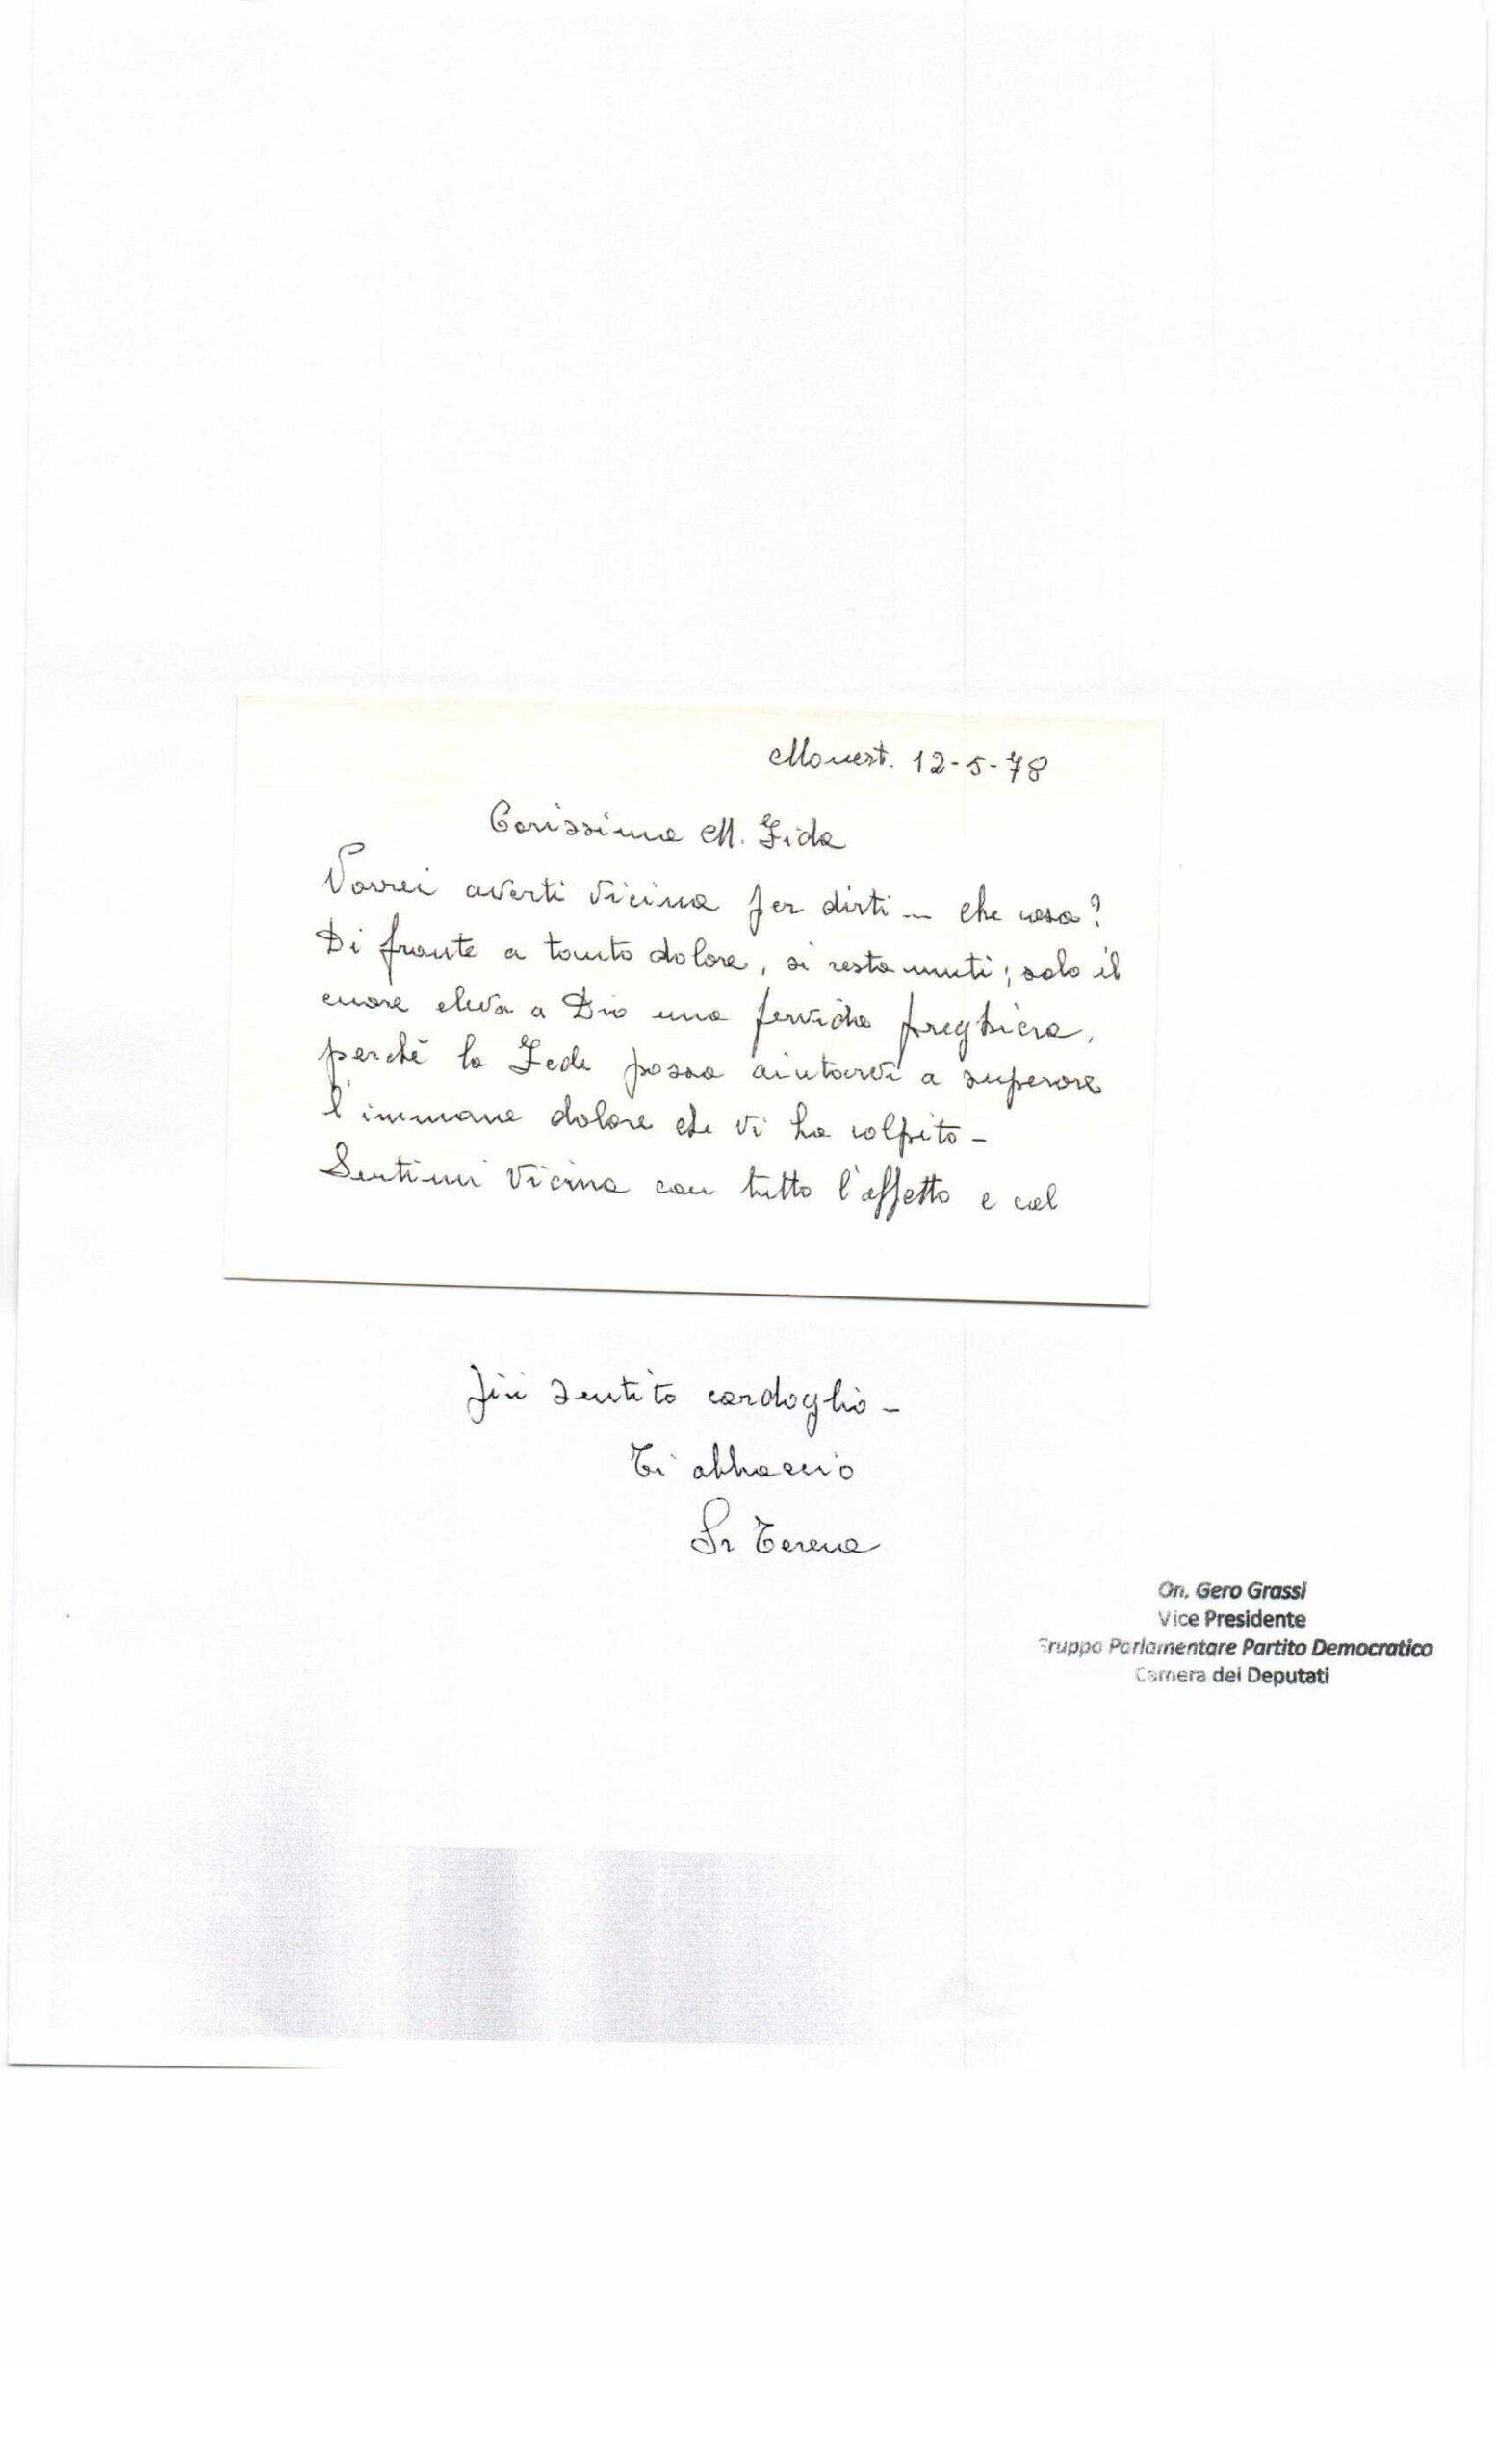 Monest. 12-5-78
Carissima M. Fida
Vorrei averti vicina per dirti ... che cosa?
Di fronte a tanto dolore, si resta muti; solo il
cuore eleva a Dio una fervida preghiera,
perchè la Fede possa aiutarvi a superare
l'immane dolore che vi ha colpito -
Sentimi vicina con tutto l'affetto e col
più sentito cordoglio -
Ti abbraccio
Sr
On. Gero Grassi
Vice Presidente
Gruppo Parlamentare Partito Democratico
Camera dei Deputati